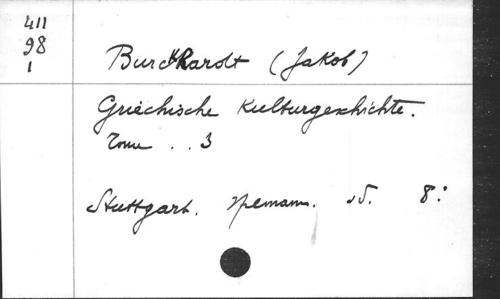 411
98
1
Burckhardt (Jakob)
Griechische Kulturgeschichte.
Tome . . 3
Stuttgart. Spemann. s.d. 8: